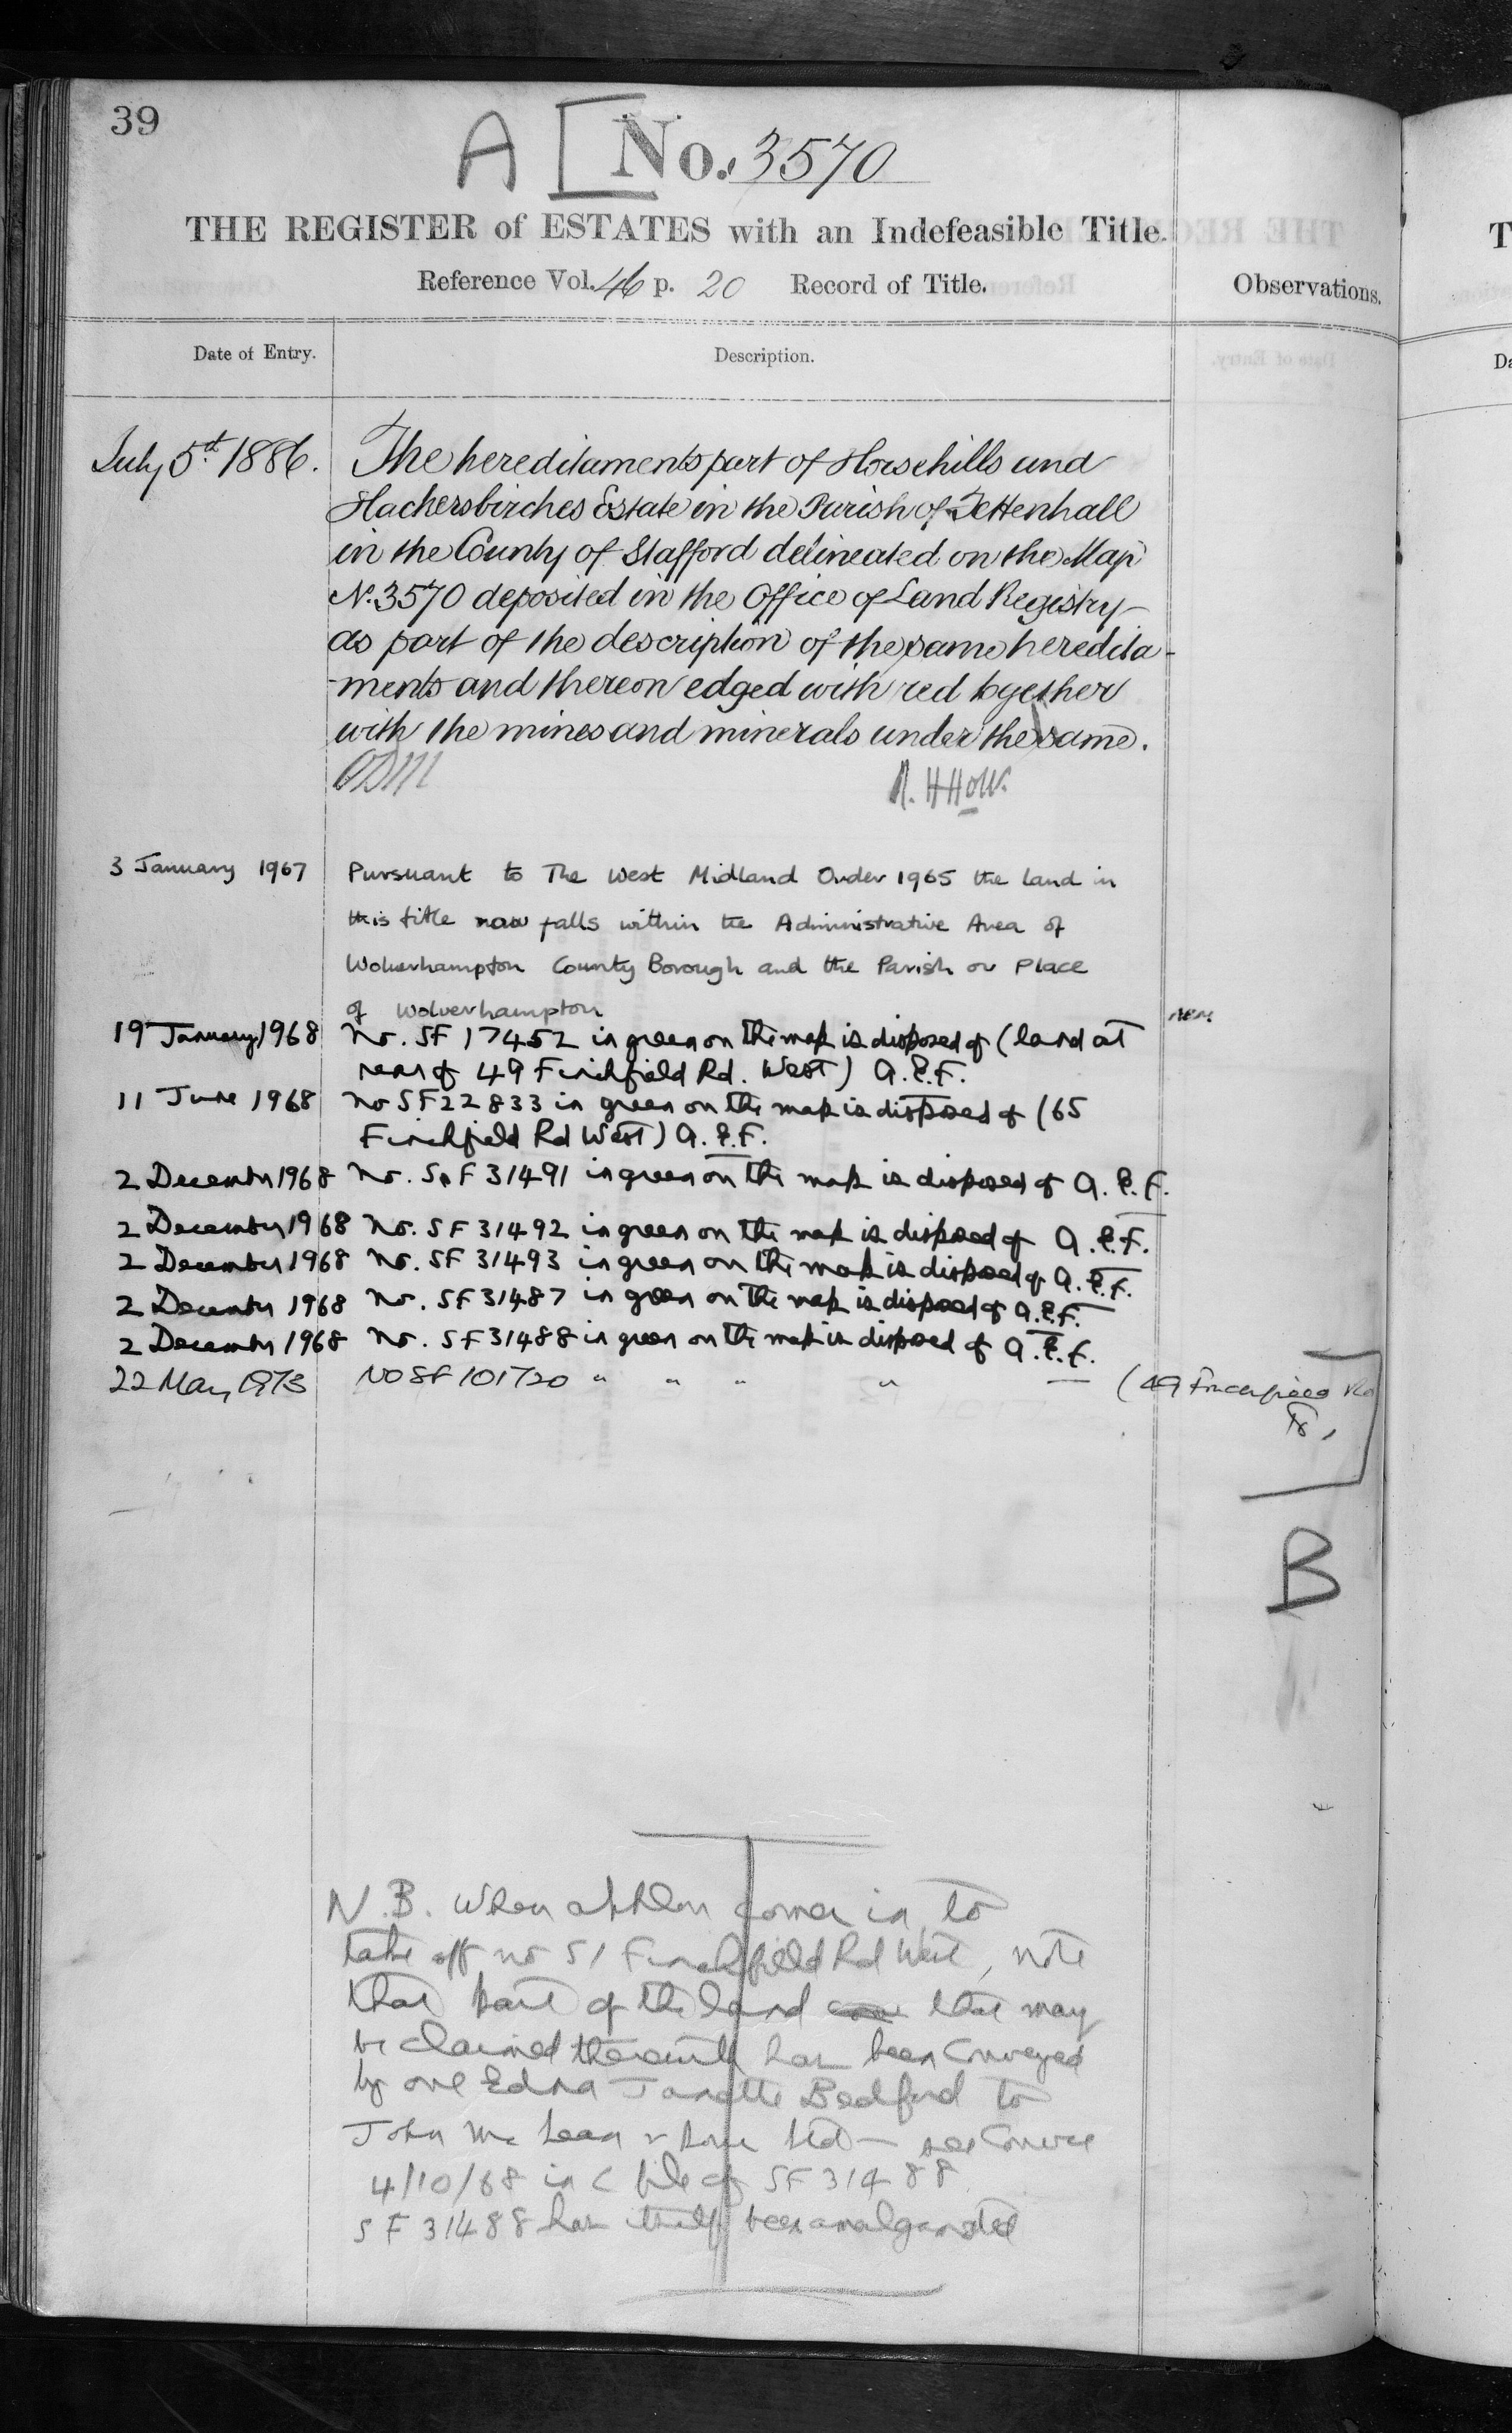 39
A [ No. 3570
THE REGISTER of ESTATES with an Indefeasible Title.
Reference Vol. 46 p. 20 Record of Title.
Observations.
Date of Entry.
Description.
July 5th 1886.
The hereditaments part of Horsehills and
Hackersbirches Estate in the Parish of Tettenhall
in the County of Stafford delineated on the Map
No. 3570 deposited in the Office of Land Registry
as part of the description of the same heredita-
-ments and thereon edged with red together
with the mines and minerals under the same.
R. H HOW.
3 January 1967 Pursuant to The West Midland Order 1965 the land in
this title now falls within the Administrative Area of
Wolverhampton County Borough and the Parish or Place
of Wolverhampton
19 January 1968 No. SF 17452 in green on the map is disposed of (land at
rear of 49 Finchfield Rd. West) A.E.F.
11 June 1968 No SF22833 in green on the map is disposed of (65
Finchfield Rd West) A.E.F.
2 December 1968 No. SF 31491 in green on the map is disposed of A.E.F.
2 December 1968 No. SF 31492 in green on the map is disposed of A.E.F.
2 December 1968 No. SF 31493 in green on the map is disposed of A.E.F.
2 December 1968 No. SF 31487 in green on the map is disposed of A.E.F.
2 December 1968 No. SF 31488 in green on the map is disposed of A.E.F.
22 May 1973 No SF 101720 " " " " (49 Finchfield Rd
]
B
N.B. When appln comes in to
take off no 51 Finchfield Rd West, note
that part of the land that may
be claimed therewith has been Conveyed
by one Edna Janette Bedford to
John Mc Lean & Sons Ltd — see Convce
4/10/68 in C file of SF 31488
SF 31488 has itself been amalgamated